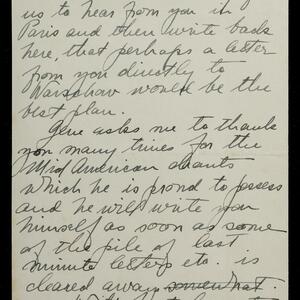 us to hear from you in
Paris and then write back
here, that perhaps a letter
from you directly to
Warschaw would be the
best plan.
Gene asks me to thank
you many times for the
Mid American chants
which he is proud to possess
and he will write you
himself as soon as some
of the pile of last
minute letters etc. is
cleared away somewhat.